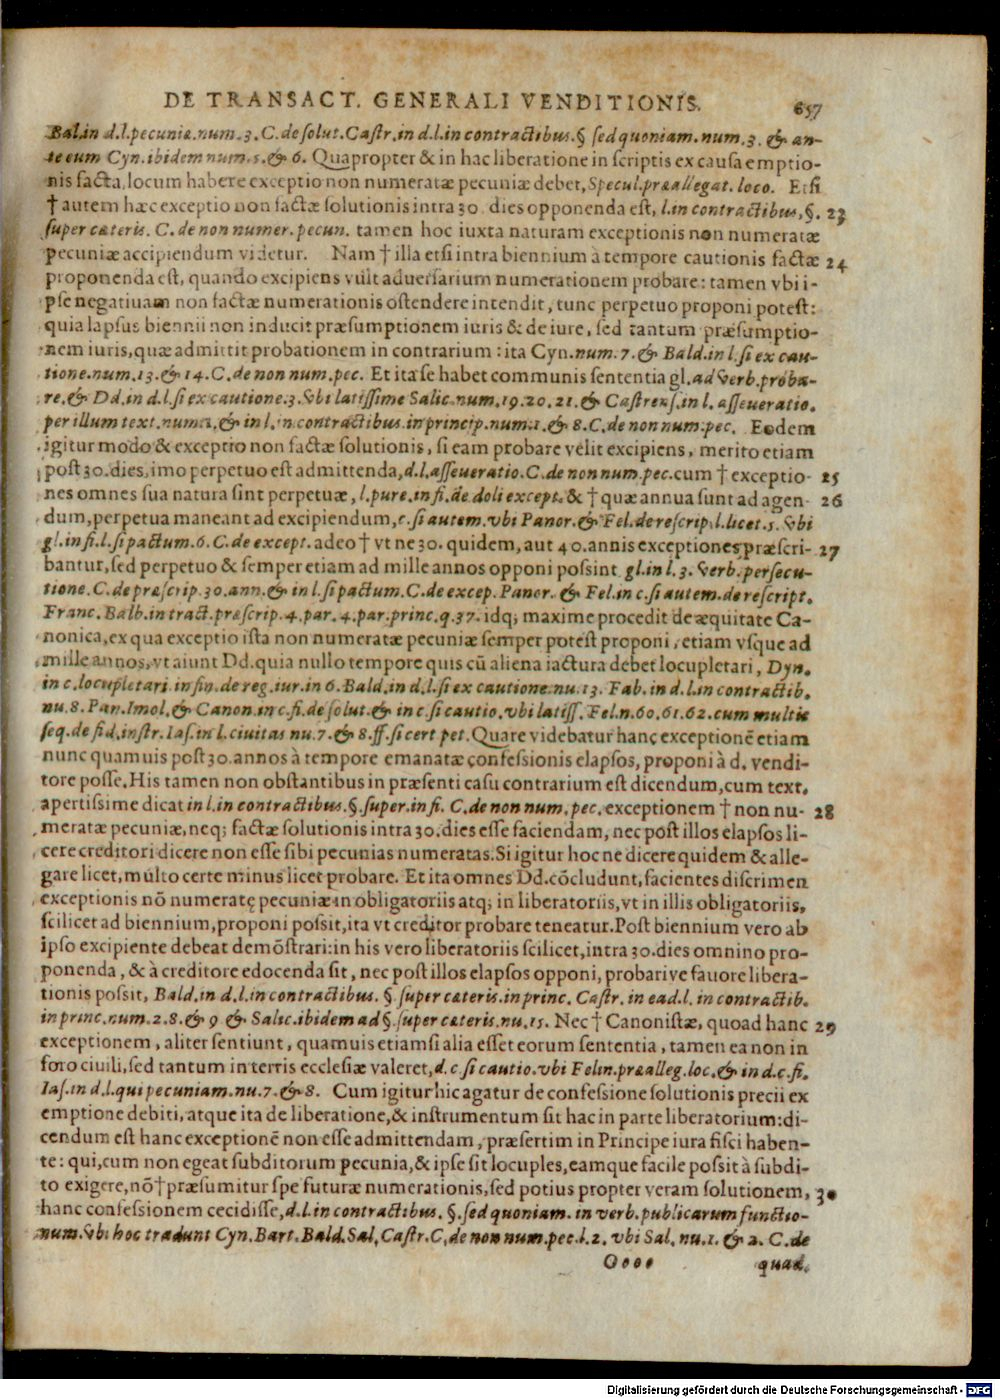 DE TRANSACT. GENERALI VENDITIONIS. 657
Bal.in d.l.pecuniæ.num.3.C.de solut.Castr.in d.l.in contractibus.§ sed quoniam.num.3. & an-
te eum Cyn.ibidem num.5.& 6. Quapropter & in hac liberatione in scriptis ex causa emptio-
nis facta, locum habere exceptio non numeratæ pecuniæ debet, Specul.præallegat.loco. Etsi
† autem hæc exceptio non factæ solutionis intra 30. dies opponenda est, l.in contractibus, §. 23
super cæteris. C. de non numer. pecun. tamen hoc iuxta naturam exceptionis non numeratæ
pecuniæ accipiendum videtur. Nam † illa etsi intra biennium à tempore cautionis factæ 24
proponenda est, quando excipiens vult aduersarium numerationem probare: tamen vbi i-
pse negatiuam non factæ numerationis ostendere intendit, tunc perpetuo proponi potest:
quia lapsus biennii non inducit præsumptionem iuris & de iure, sed tantum præsumptio-
nem iuris, quæ admittit probationem in contrarium: ita Cyn.num.7.& Bald.in l.si ex cau-
tione.num.13.& 14.C.de non num.pec. Et ita se habet communis sententia gl.ad verb.proba-
re.& Dd.in d.l.si ex cautione.3.vbi latissime Salic.num.19.20.21.& Castrens.in l.asseueratio.
per illum text.num.1,& in l.in contractibus.in princip.num.1.& 8.C.de non num.pec. Eodem
igitur modo & exceptio non factæ solutionis, si eam probare velit excipiens, merito etiam
post 30. dies, imo perpetuo est admittenda, d.l.asseueratio.C.de non num.pec.cum † exceptio- 25
nes omnes sua natura sint perpetuæ, l.pure.in fi.de doli except.& † quæ annua sunt ad agen- 26
dum, perpetua maneant ad excipiendum, c.si autem.vbi Panor.& Fel.de rescrip.l.licet.5.vbi
gl.in fi.l.si pactum.6.C.de except. adeo † vt ne 30. quidem, aut 40. annis exceptiones præscri- 27
bantur, sed perpetuo & semper etiam ad mille annos opponi possint gl.in l.3.verb.persecu-
tione.C.de præscrip.30.ann.& in l.si pactum.C.de excep.Panor.& Fel.in c.si autem.de rescript.
Franc.Balb.in tract.præscrip.4.par.4.par.princ.q.37. idq; maxime procedit de æquitate Ca-
nonica, ex qua exceptio ista non numeratæ pecuniæ semper potest proponi, etiam vsque ad
mille annos, vt aiunt Dd.quia nullo tempore quis cū aliena iactura debet locupletari, Dyn.
in c.locupletari.in fin.de reg.iur.in 6.Bald.in d.l.si ex cautione nu.13. Fab.in d.l.in contractib.
nu.8.Pan.Imol.& Canon.in c.fi.de solut.& in c.si cautio.vbi latiss.Fel.n.60.61.62.cum multis
seq.de fid.instr.Ias.in l.ciuitas nu.7.& 8.ff.si cert pet.Quare videbatur hanc exceptionē etiam
nunc quamuis post 30.annos à tempore emanatæ confessionis elapsos, proponi à d. vendi-
tore posse.His tamen non obstantibus in præsenti casu contrarium est dicendum, cum text.
apertissime dicat in l.in contractibus.§.super.in fi. C.de non num. pec.exceptionem † non nu- 28
meratæ pecuniæ, neq; factæ solutionis intra 30.dies esse faciendam, nec post illos elapsos li-
cere creditori dicere non esse sibi pecunias numeratas.Si igitur hoc ne dicere quidem & alle-
gare licet, multo certe minus licet probare. Et ita omnes Dd.cōcludunt, facientes discrimen
exceptionis nō numeratę pecuniæ in obligatoriis atq; in liberatoriis, vt in illis obligatoriis,
scilicet ad biennium, proponi possit, ita vt creditor probare teneatur.Post biennium vero ab
ipso excipiente debeat demōstrari: in his vero liberatoriis scilicet, intra 30.dies omnino pro-
ponenda, & à creditore edocenda sit, nec post illos elapsos opponi, probarive fauore libera-
tionis possit, Bald.in d.l.in contractibus. §.super cæteris.in princ. Castr. in ead.l. in contractib.
in princ.num.2.8.& 9 & Salic.ibidem ad §.super cæteris.nu.15. Nec † Canonistæ, quoad hanc 29
exceptionem, aliter sentiunt, quamuis etiamsi alia esset eorum sententia, tamen ea non in
foro ciuili, sed tantum in terris ecclesiæ valeret, d.c.si cautio.vbi Felin.præalleg.loc.& in d.c.fi.
Ias.in d.l.qui pecuniam.nu.7.& 8. Cum igitur hic agatur de confessione solutionis precii ex
emptione debiti, atque ita de liberatione, & instrumentum sit hac in parte liberatorium: di-
cendum est hanc exceptionē non esse admittendam, præsertim in Principe iura fisci haben-
te: qui, cum non egeat subditorum pecunia, & ipse sit locuples, eamque facile possit à subdi-
to exigere, nō † præsumitur spe futuræ numerationis, sed potius propter veram solutionem, 30
hanc confessionem cecidisse, d.l.in contractibus. §.sed quoniam. in verb.publicarum functio-
num.vbi hoc tradunt Cyn.Bart.Bald.Sal.Castr.C.de non num.pec.l.2. vbi Sal. nu.1. & 2. C.de
Oooo quad.
Digitalisierung gefördert durch die Deutsche Forschungsgemeinschaft - DFG